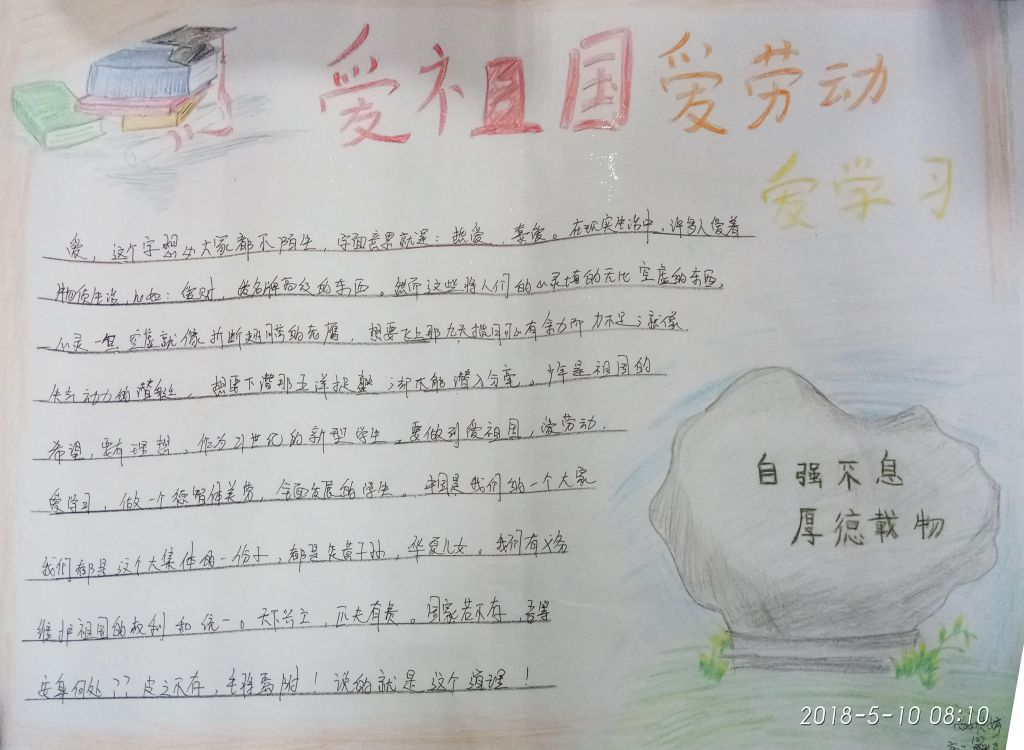 爱祖国 爱劳动
爱学习
爱，这个字想必大家都不陌生，字面意思就是：热爱、喜爱。在现实生活中，许多人爱着
物质生活，比如：爱财，爱名牌高级的东西。然而这些将人们的心灵填的无比空虚的东西，
心灵一旦空虚就像折断翅膀的老鹰，想要飞上那九天揽月可心有余力而力不足；就像
失去动力的潜艇，想要下潜那五洋捉鳖；却不能潜入分毫。少年是祖国的
希望，要有理想，作为21世纪的新型学生，要做到爱祖国，爱劳动，
爱学习，做一个德智体美劳，全面发展的学生。中国是我们的一个大家
我们都是这个大集体的一份子，都是炎黄子孙，华夏儿女。我们有义务
维护祖国的权利和统一。天下兴亡，匹夫有责。国家若不存，吾等
安身何处？？皮之不存，毛将焉附！说的就是这个道理！
自强不息
厚德载物
2018-5-10 08:10